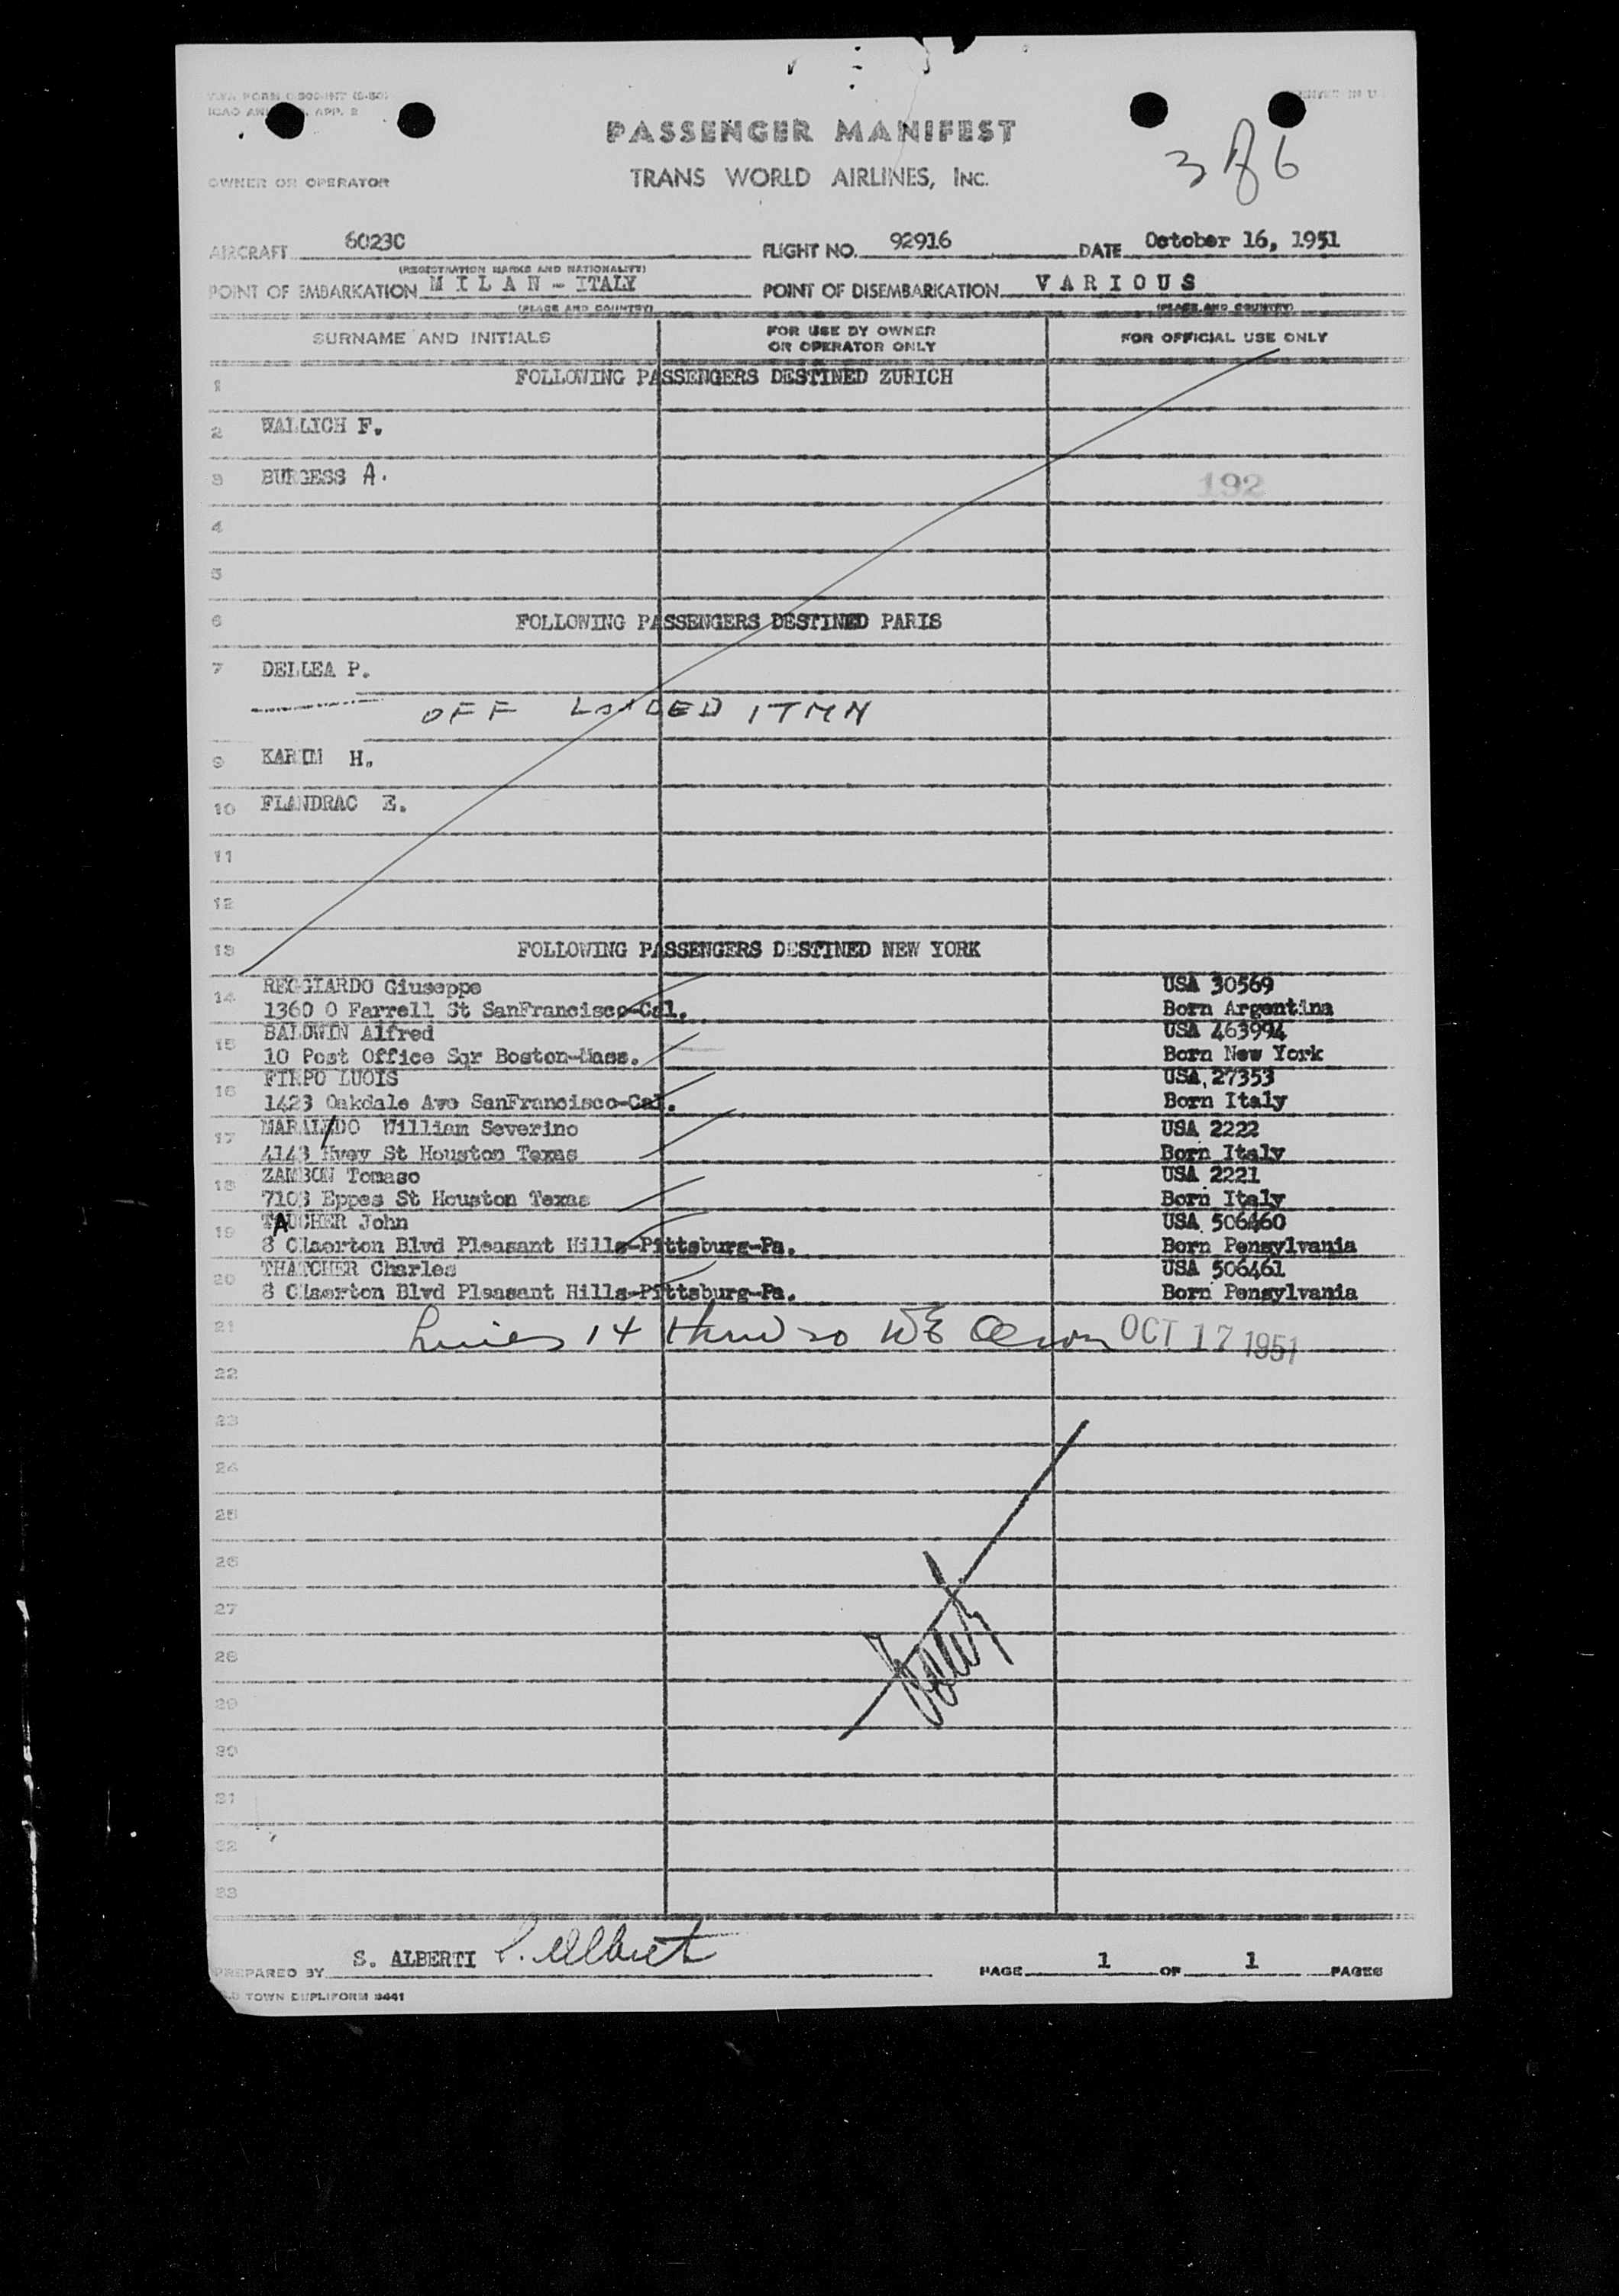 PASSENGER MANIFEST
OWNER OR OPERATOR TRANS WORLD AIRLINES, INC.
AIRCRAFT 6023C FLIGHT NO. 92916 DATE October 16, 1951
(REGISTRATION MARKS AND NATIONALITY)
POINT OF EMBARKATION MILAN - ITALY POINT OF DISEMBARKATION VARIOUS
(PLACE AND COUNTRY) (PLACE AND COUNTRY)
SURNAME AND INITIALS FOR USE BY OWNER OR OPERATOR ONLY FOR OFFICIAL USE ONLY
1 FOLLOWING PASSENGERS DESTINED ZURICH
2 WALLICH F.
3 BURGESS A. 192
4
5
6 FOLLOWING PASSENGERS DESTINED PARIS
7 DELLEA P.
OFF LOADED
9 KARIM H.
10 FLANDRAC E.
11
12
13 FOLLOWING PASSENGERS DESTINED NEW YORK
14 REGGIARDO Giuseppe USA 30569
1360 O Farrell St SanFrancisco-Cal. Born Argentina
15 BALDWIN Alfred USA 463994
10 Post Office Sqr Boston-Mass. Born New York
16 FIRPO LUOIS USA 27353
1423 Oakdale Ave SanFrancisco-Cal. Born Italy
17 MARALDO William Severino USA 2222
4143 St Houston Texas Born Italy
18 ZAMBON Tomaso USA 2221
7103 Eppes St Houston Texas Born Italy
19 John USA 506460
8 Blvd Pleasant Hills-Pittsburg-Pa. Born Pensylvania
20 THATCHER Charles USA 506461
8 Blvd Pleasant Hills-Pittsburg-Pa. Born Pensylvania
21 Lines 14 thru 20 OCT 17 1951
22
23
24
25
26
27
28
29
30
31
32
33
PREPARED BY S. ALBERTI PAGE 1 OF 1 PAGES
TOWN DUPLIFORM 3441